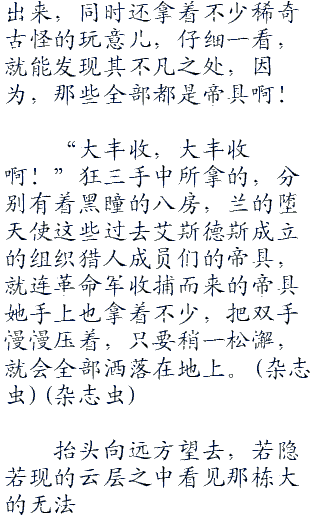 出来，同时还拿着不少稀奇
古怪的玩意儿，仔细一看，
就能发现其不凡之处，因
为，那些全部都是帝具啊！
“大丰收，大丰收
啊！”狂三手中所拿的，分
别有着黑瞳的八房，兰的堕
天使这些过去艾斯德斯成立
的组织猎人成员们的帝具，
就连革命军收捕而来的帝具
她手上也拿着不少，把双手
慢慢压着，只要稍一松懈，
就会全部洒落在地上。(杂志
虫)(杂志虫)
抬头向远方望去，若隐
若现的云层之中看见那栋大
的无法